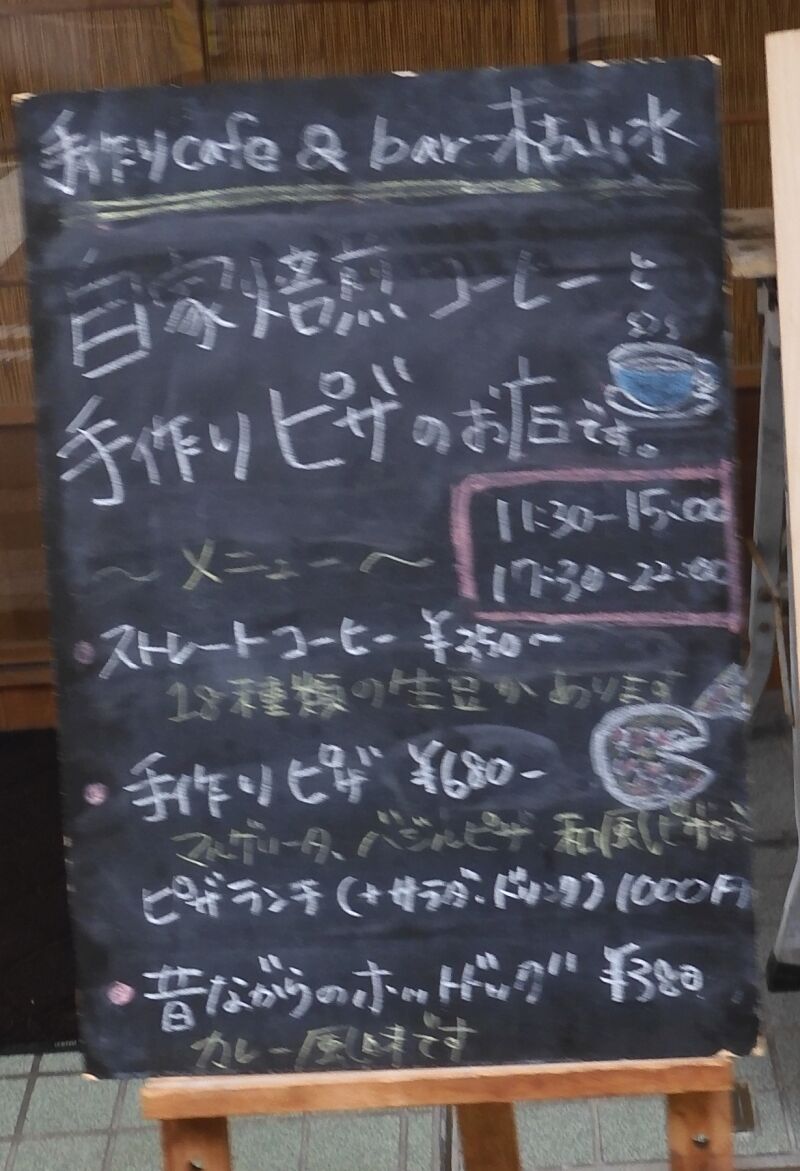 手作りcafe & bar 枯山水
自家焙煎コーヒーと
手作りピザのお店です。
11:30-15:00
17:30-22:00
～メニュー～
ストレートコーヒー ¥350～
18種類の生豆があります
手作りピザ ¥680-
マルゲリータ、バジルピザ、和風ピザなど
ピザランチ(+サラダ・ドリンク)1000円
昔ながらのホットドッグ ¥380
カレー風味です